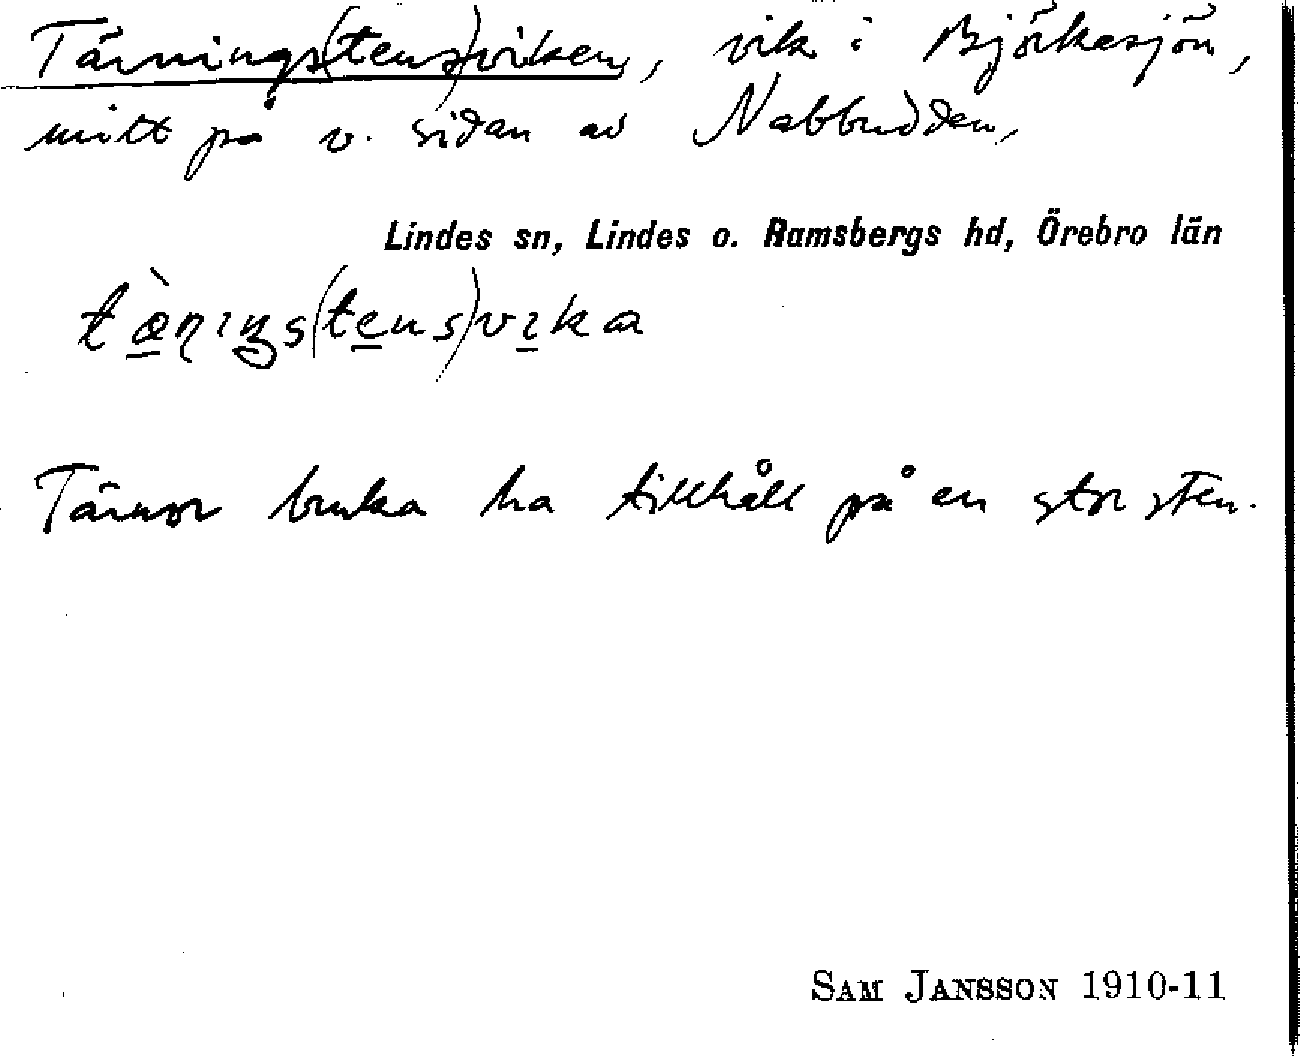 Tärnings(tens)viken, vik i Björkesjön,
mitt på v. sidan av Nabbudden,
Lindes sn, Lindes o. Ramsbergs hd, Örebro län
tæ̀ṇıŋs(tens)vıka
Tärnor bruka ha tillhåll på en stor sten.
SAM JANSSON 1910-11